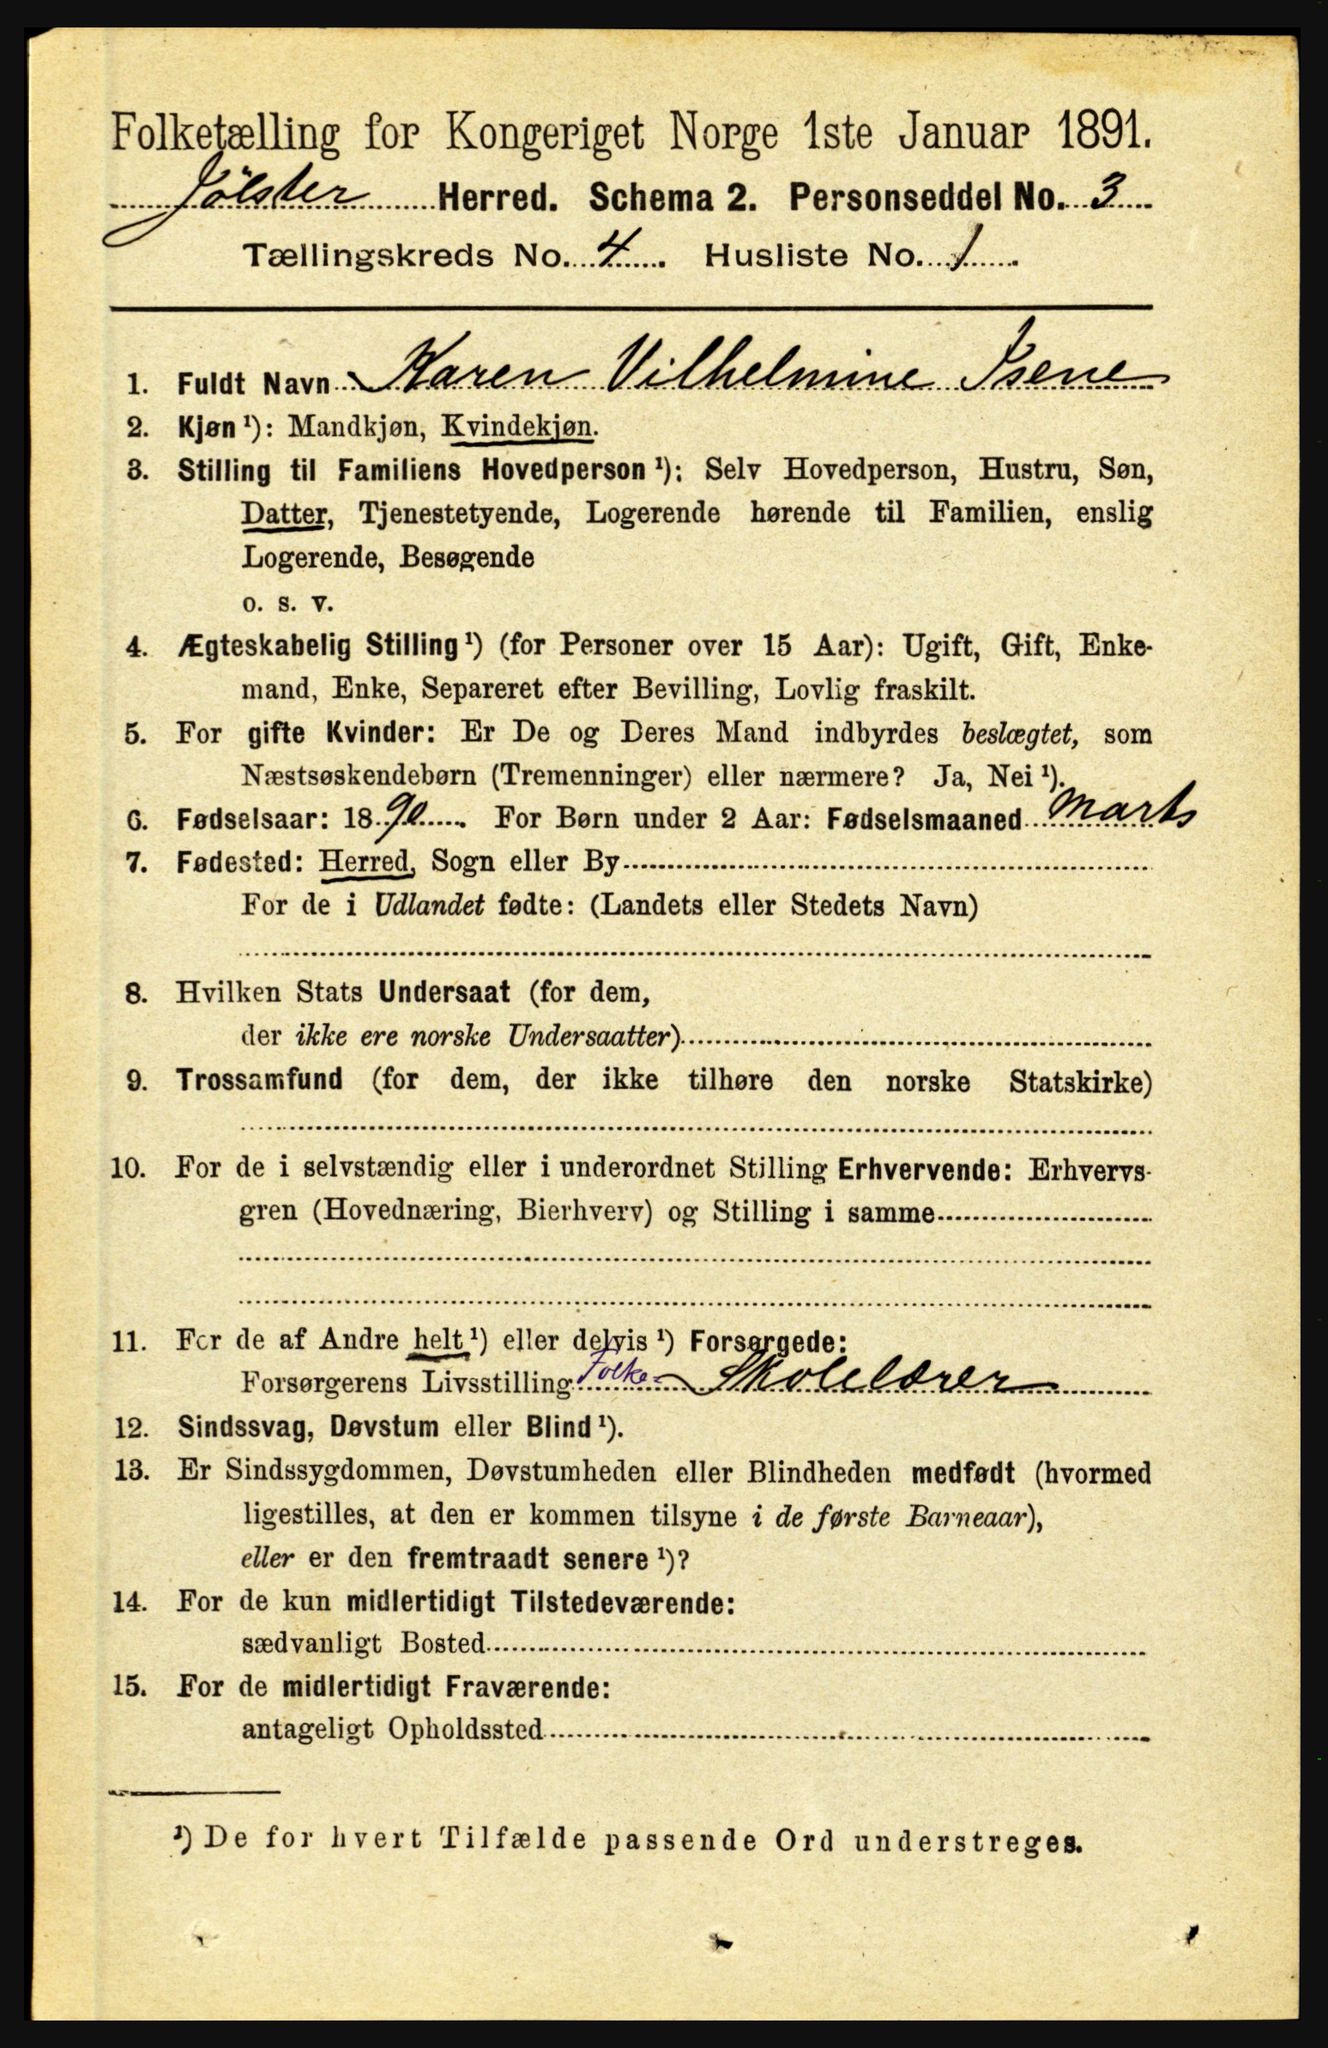 Folketælling for Kongeriget Norge 1ste Januar 1891.
Jølster Herred. Schema 2. Personseddel No. 3
Tællingskreds No. 4. Husliste No. 1.
1. Fuldt Navn Karen Vilhelmine Isene
2. Kjøn ¹): Mandkjøn, Kvindekjøn.
3. Stilling til Familiens Hovedperson ¹): Selv Hovedperson, Hustru, Søn,
Datter, Tjenestetyende, Logerende hørende til Familien, enslig
Logerende, Besøgende
o. s. v.
4. Ægteskabelig Stilling ¹) (for Personer over 15 Aar): Ugift, Gift, Enke-
mand, Enke, Separeret efter Bevilling, Lovlig fraskilt.
5. For gifte Kvinder: Er De og Deres Mand indbyrdes beslægtet, som
Næstsøskendebørn (Tremenninger) eller nærmere? Ja, Nei ¹).
6. Fødselsaar: 1890. For Børn under 2 Aar: Fødselsmaaned Marts
7. Fødested: Herred, Sogn eller By
For de i Udlandet fødte: (Landets eller Stedets Navn)
8. Hvilken Stats Undersaat (for dem,
der ikke ere norske Undersaatter)
9. Trossamfund (for dem, der ikke tilhøre den norske Statskirke)
10. For de i selvstændig eller i underordnet Stilling Erhvervende: Erhvervs-
gren (Hovednæring, Bierhverv) og Stilling i samme
11. For de af Andre helt ¹) eller delvis ¹) Forsørgede:
Forsørgerens Livsstilling Folke- Skolelærer
12. Sindssvag, Døvstum eller Blind ¹).
13. Er Sindssygdommen, Døvstumheden eller Blindheden medfødt (hvormed
ligestilles, at den er kommen tilsyne i de første Barneaar),
eller er den fremtraadt senere ¹)?
14. For de kun midlertidigt Tilstedeværende:
sædvanligt Bosted
15. For de midlertidigt Fraværende:
antageligt Opholdssted
¹) De for hvert Tilfælde passende Ord understreges.